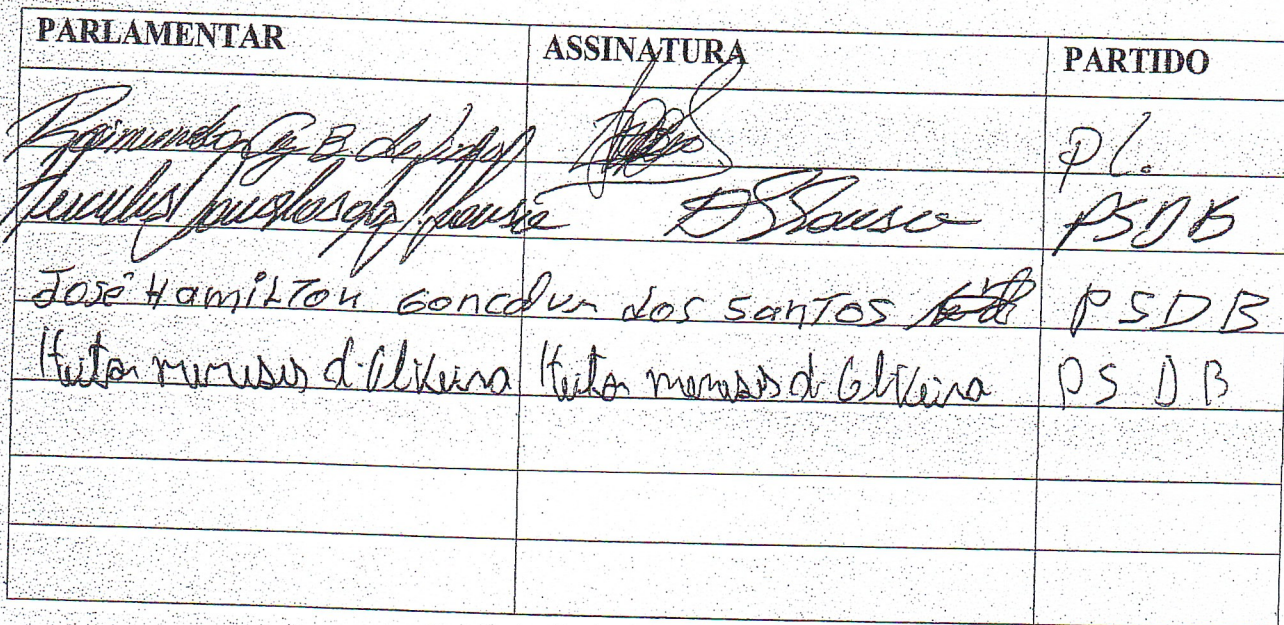 PARLAMENTAR ASSINATURA PARTIDO
Raimundo PL.
Hercules PSDB
José Hamilton Goncalves dos Santos PSDB
Heitor meneses d. Oliveira Heitor meneses d. Oliveira PSDB